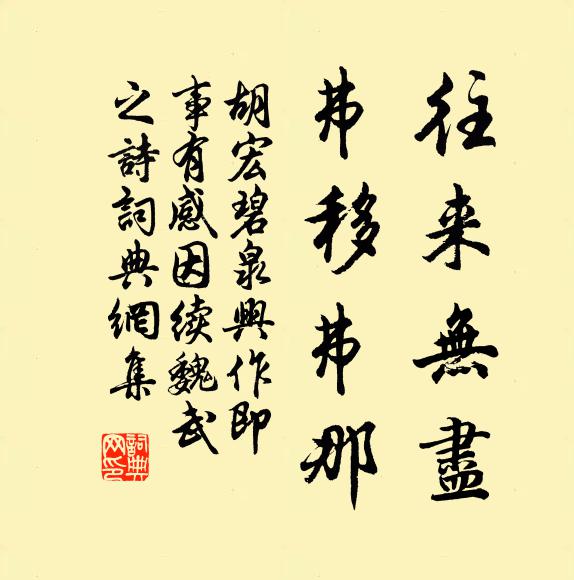 往来無盡
弗移弗那
胡宏碧泉興作即
事有感因续魏武
之詩詞典網集
詞典网印